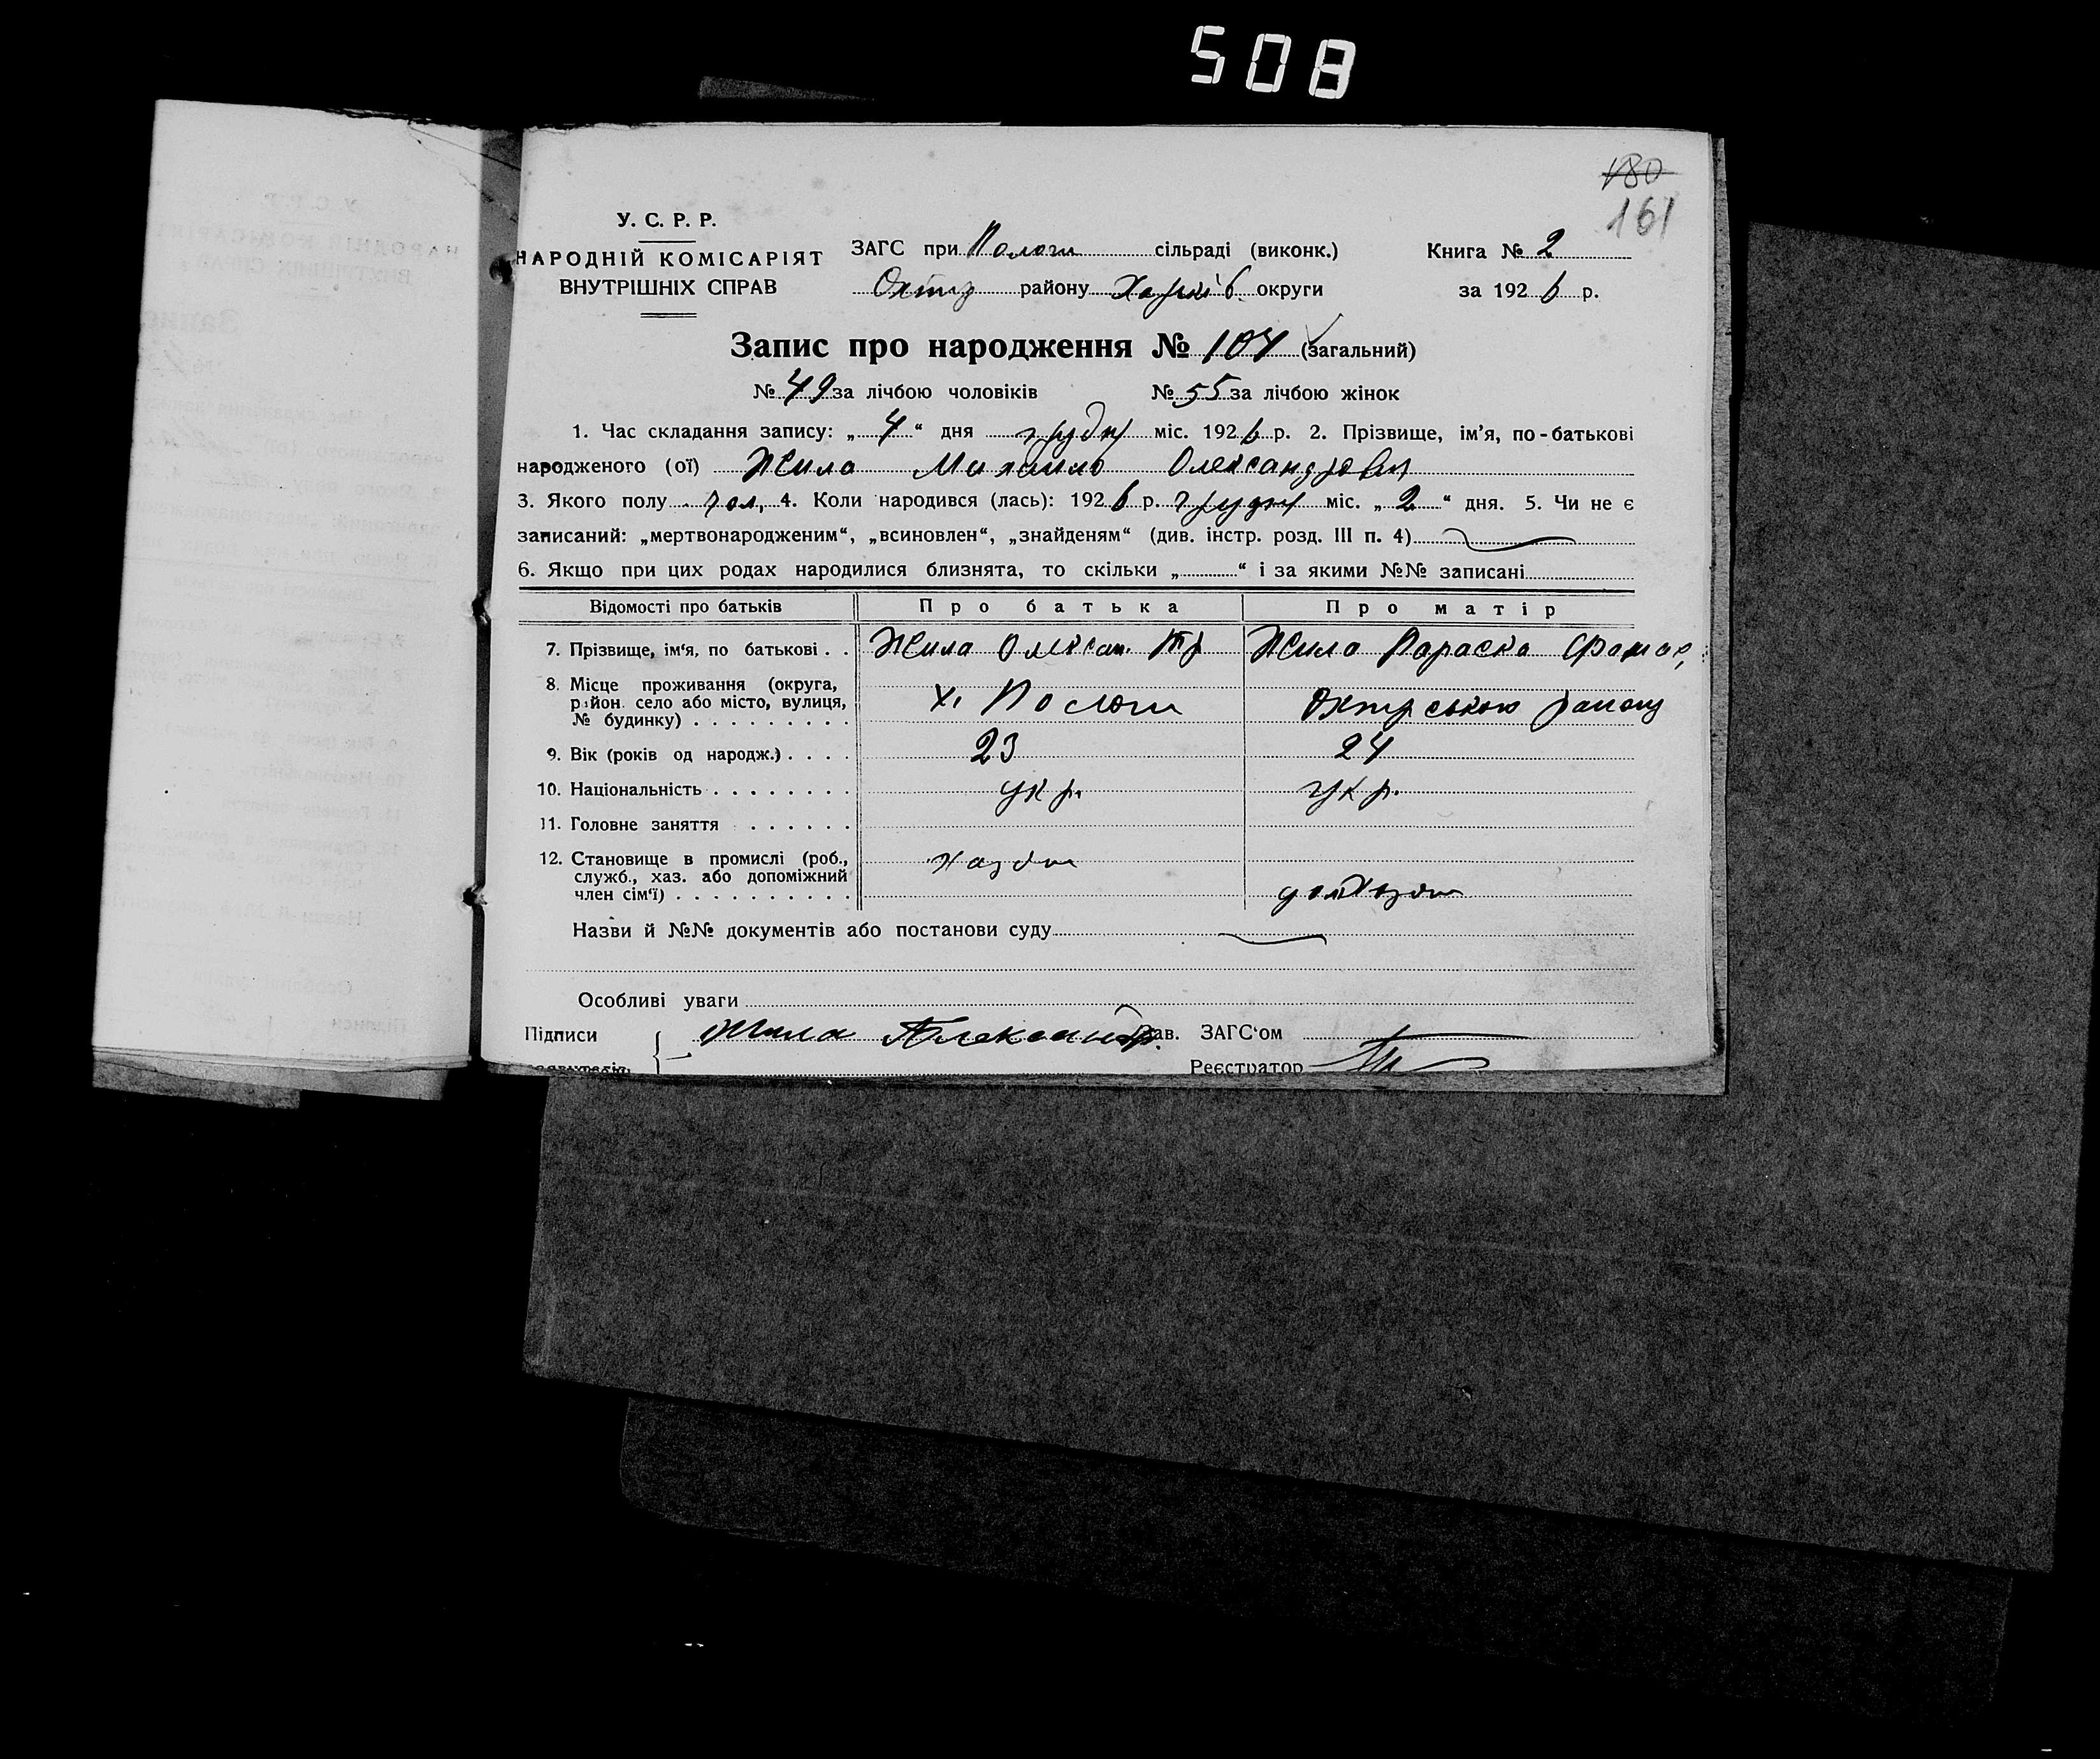 508
180
161
У. С. Р. Р.
НАРОДНІЙ КОМІСАРІЯТ
ВНУТРІШНІХ СПРАВ
ЗАГС при Пологи сільраді (виконк.)
Охтир району Харків. округи
Книга № 2
за 1926 р.
Запис про народження № 104 (загальний)
№ 49 за лічбою чоловіків № 55 за лічбою жінок
1. Час складання запису: „4“ дня грудн міс. 1926 р. 2. Прізвище, ім’я, по-батькові
народженого (ої) Жила Михайло Олександрович
3. Якого полу чол, 4. Коли народився (лась): 1926 р. грудн міс. „2“ дня. 5. Чи не є
записаний: „мертвонародженим“, „всиновлен“, „знайденям“ (див. інстр. розд. III п. 4)
6. Якщо при цих родах народилися близнята, то скільки „ “ і за якими №№ записані
Відомості про батьків Про батька Про матір
7. Прізвище, ім‘я, по батькові . . Жила Олексан. Жила Параска
8. Місце проживання (округа,
район село або місто, вулиця, х. Пологи Охтирського району
№ будинку) . . . . . . . . .
9. Вік (років од народж.) . . . . 23 24
10. Національність . . . . . . . . укр. укр.
11. Головне заняття . . . . . .
12. Становище в промислі (роб., хазяін
служб., хаз. або допоміжний
член сім‘ї) . . . . . . . . . . домхазян
Назви й №№ документів або постанови суду
Особливі уваги
Підписи Жила Александр. Зав. ЗАГС‘ом
Реєстратор